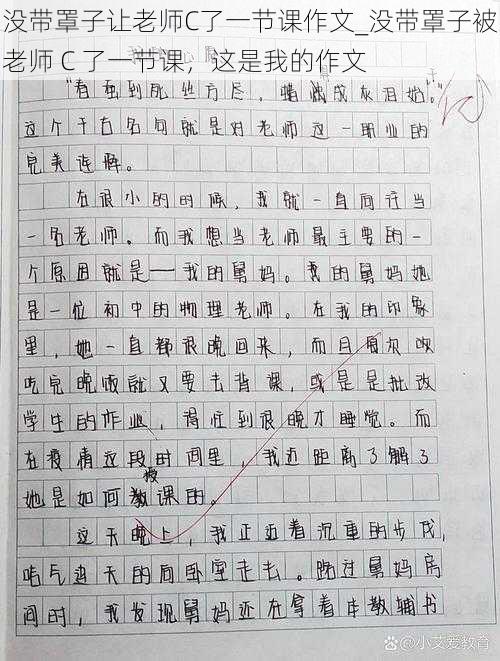 没带罩子让老师C了一节课作文_没带罩子被
老师 C 了一节课，这是我的作文
"春蚕到死丝方尽，蜡炬成灰泪始干。"
这个千古名句就是对老师这一职业的
完美诠释。
在很小的时候，我就一直向往当
一名老师。而我想当老师最主要的一
个原因就是——我的舅妈。我的舅妈她
是一位初中的物理老师。在我的印象
里，她一直都很晚回来，而且每次
吃完晚饭就又要去背课，或是是批改
学生的作业，得忙到很晚才睡觉。而
在疫情这段时间里，我近距离了解了
她是如何教课的。
这天晚上，我正迈着沉重的步伐，
唉气连天的向卧室走去。路过舅妈房
间时，我发现舅妈还在拿着本教辅书
@小艾爱教育